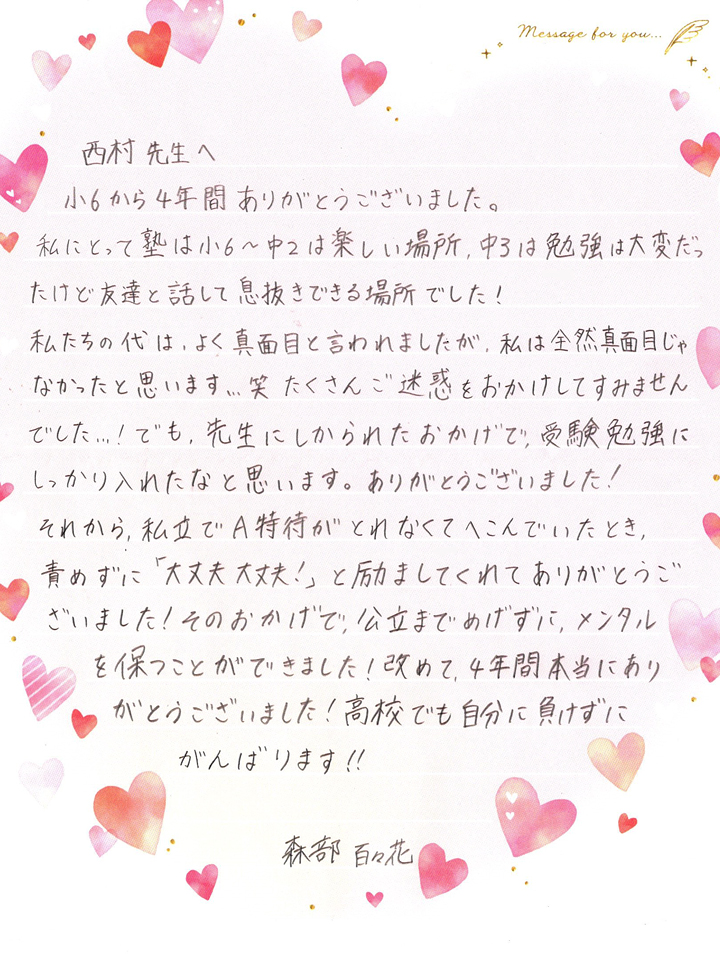 Message for you...
西村先生へ
小6から4年間ありがとうございました。
私にとって塾は小6～中2は楽しい場所,中3は勉強は大変だっ
たけど友達と話して息抜きできる場所でした！
私たちの代は,よく真面目と言われましたが,私は全然真面目じゃ
なかったと思います...笑 たくさんご迷惑をおかけしてすみません
でした...！でも,先生にしかられたおかげで,受験勉強に
しっかり入れたなと思います。ありがとうございました！
それから,私立でA特待がとれなくてへこんでいたとき,
責めずに「大丈夫大丈夫！」と励ましてくれてありがとうご
ざいました！そのおかげで,公立までめげずに,メンタル
を保つことができました！改めて,4年間本当にあり
がとうございました！高校でも自分に負けずに
がんばります!!
森部 百々花